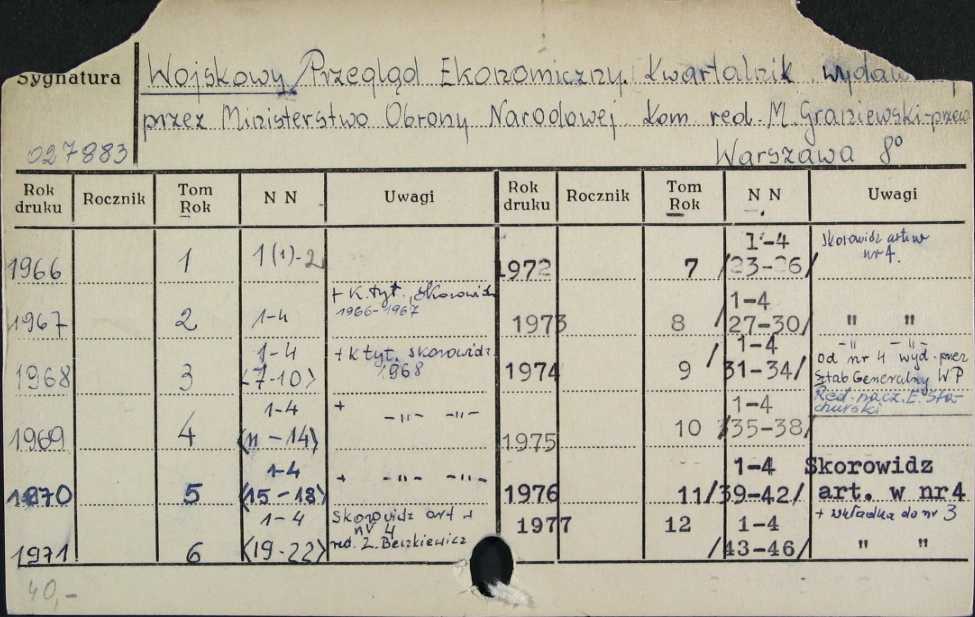 Sygnatura
Wojskowy Przegląd Ekonomiczny. Kwartalnik
przez Ministerstwo Obrony Narodowej Kom red. M. Graniewski-przew
027883
Warszawa 8°
Rok druku Rocznik Tom Rok N N Uwagi Rok druku Rocznik Tom Rok N N Uwagi
1966 1 1(1)-2
1967 2 1-4 + k. tyt., skorowidz 1966-1967
1968 3 1-4 <7-10> + k tyt. skorowidz 1968
1969 4 1-4 <11-14> + -"- -"-
1970 5 1-4 <15-18> + -"- -"-
1971 6 1-4 <19-22> Skorowidz art w nr 4 red. Z. Beczkiewicz
1972 7 1-4 /23-26/ skorowidz art. w nr 4.
1973 8 1-4 /27-30/ " "
1974 9 1-4 /31-34/ -"- -"- od nr 4 wyd. przez Sztab Generalny WP Red. nacz. E. Stachurski
1975 10 1-4 /35-38/
1976 11 1-4 /39-42/ Skorowidz art. w nr 4
1977 12 1-4 /43-46/ + wkładka do nr 3 " "
40,-